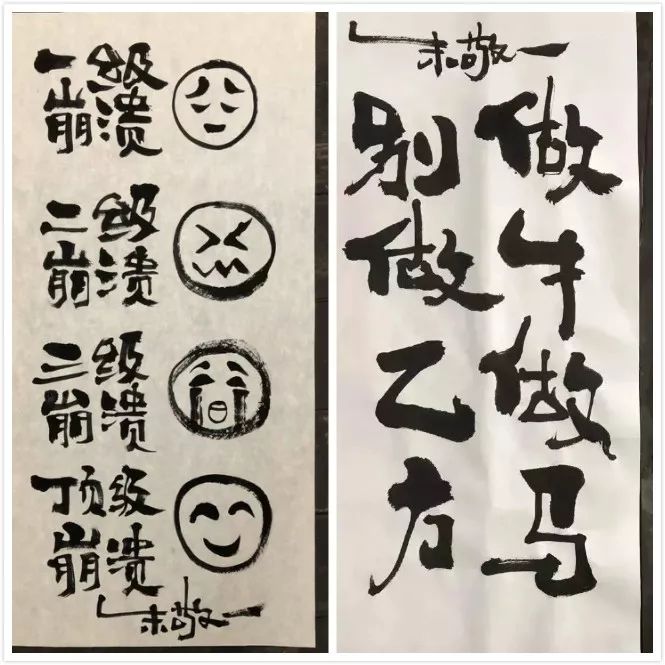 一级
崩溃
二级
崩溃
三级
崩溃
顶级
崩溃
朱敬一
朱敬一
做牛做马
别做乙方